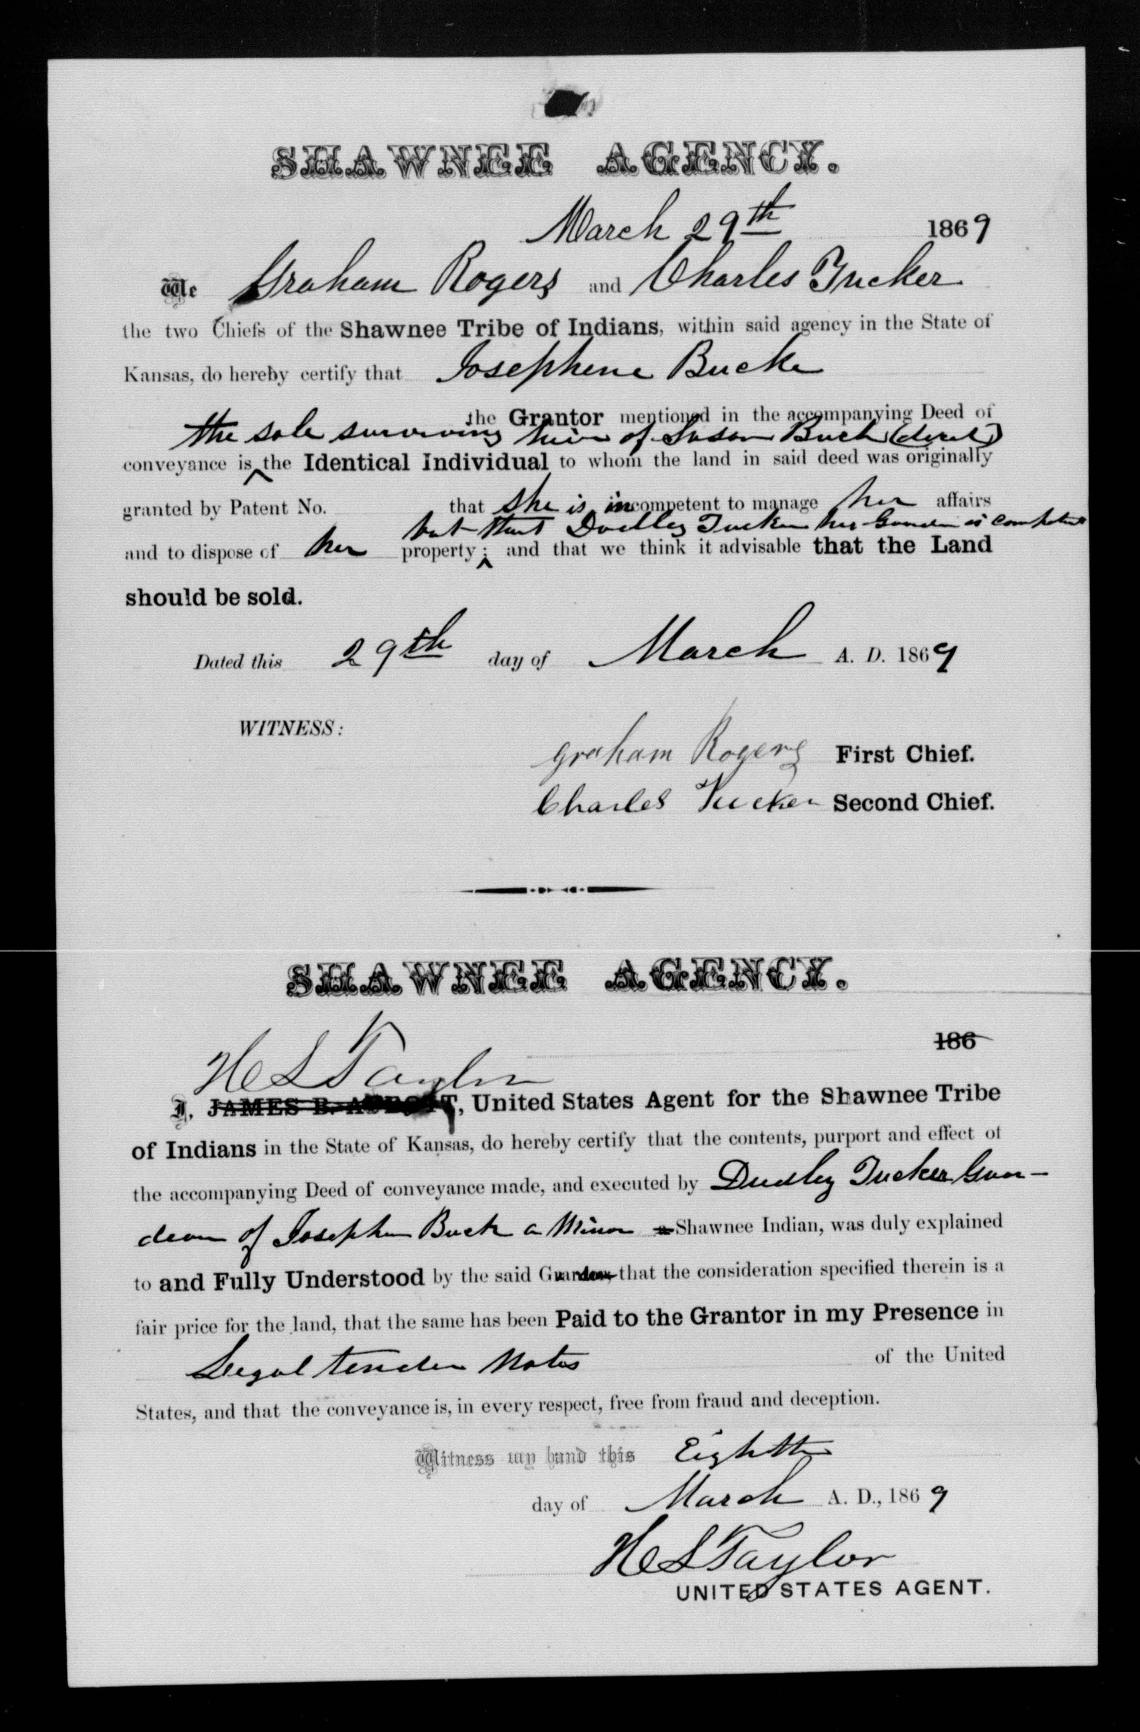 SHAWNEE AGENCY.
March 29th 1869
We Graham Rogers and Charles Tucker
the two Chiefs of the Shawnee Tribe of Indians, within said agency in the State of
Kansas, do hereby certify that Josephene Buck
the Grantor mentioned in the accompanying Deed of
the sole surviving heir of Susan Buck (decd)
conveyance is ^ the Identical Individual to whom the land in said deed was originally
granted by Patent No. that she is incompetent to manage her affairs
but that Dudley Tucker her Guardian is competent
and to dispose of her property; ^ and that we think it advisable that the Land
should be sold.
Dated this 29th day of March A. D. 1869
WITNESS:
Graham Rogers First Chief.
Charles Tucker Second Chief.
SHAWNEE AGENCY.
186
H L Taylor
I, JAMES B. ABBOTT, United States Agent for the Shawnee Tribe
of Indians in the State of Kansas, do hereby certify that the contents, purport and effect of
the accompanying Deed of conveyance made, and executed by Dudley Tucker Guar-
dean of Josephen Buck a Minor a Shawnee Indian, was duly explained
to and Fully Understood by the said that the consideration specified therein is a
fair price for the land, that the same has been Paid to the Grantor in my Presence in
Legal tender Notes of the United
States, and that the conveyance is, in every respect, free from fraud and deception.
Witness my hand this Eighth
day of March A. D., 1869
H L Taylor
UNITED STATES AGENT.